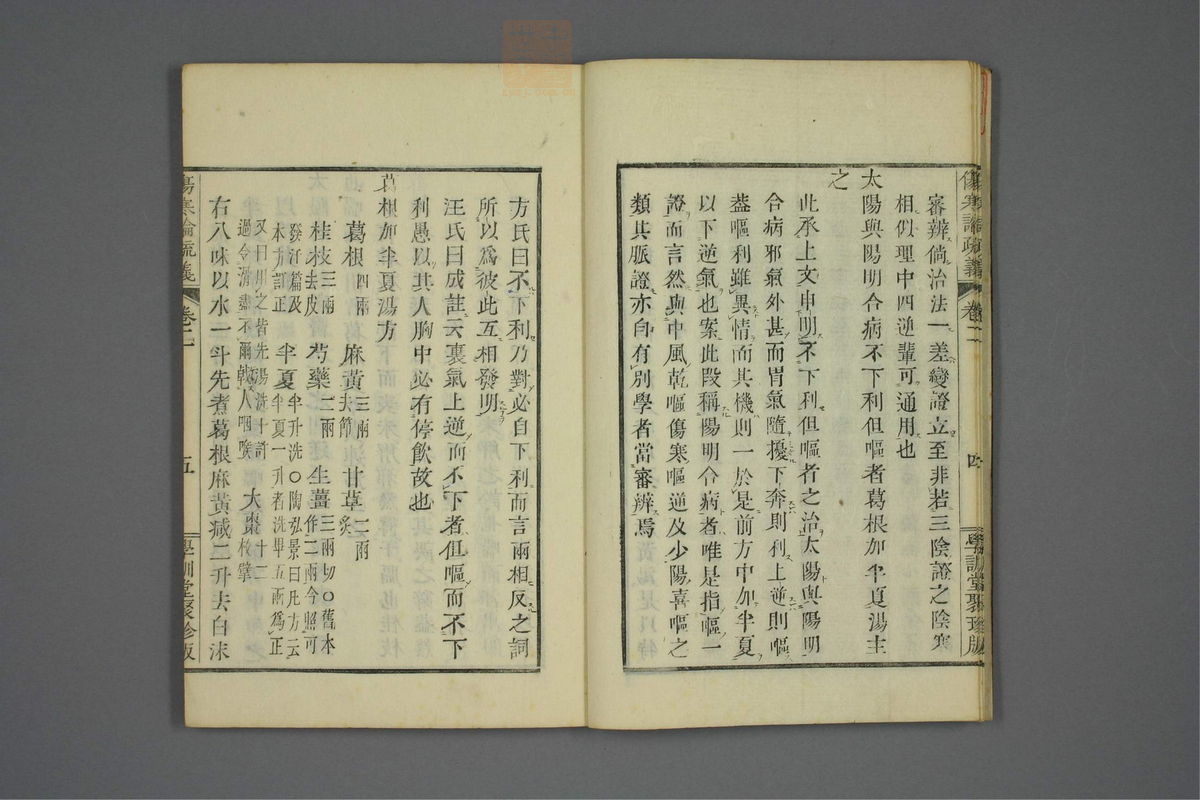 傷寒論疏義 卷二 四 學訓堂聚珍版
審辨倘治法一差變證立至非若三陰證之陰寒
相似理中四逆輩可通用也
太陽與陽明合病不下利但嘔者葛根加半夏湯主
之
此承上文申明不下利但嘔者之治太陽與陽明
合病邪氣外甚而胃氣隨擾下奔則利上逆則嘔
蓋嘔利雖異情而其機則一於是前方中加半夏
以下逆氣也案此段稱陽明合病者唯是指嘔一
證而言然與中風乾嘔傷寒嘔逆及少陽喜嘔之
類其脈證亦自有別學者當審辨焉
方氏曰不下利乃對必自下利而言兩相反之詞
所以爲彼此互相發明
汪氏曰成註云裏氣上逆而不下者但嘔而不下
利愚以其人胸中必有停飲故也
葛根加半夏湯方
葛根四兩 麻黃三兩去節 甘草二兩炙
桂枝三兩去皮 芍藥二兩 生薑三兩切○舊本作二兩今照可
發汗篇及本方訂正 半夏半升洗○陶弘景曰凡方云半夏一升者洗畢五兩爲正
又曰用之皆先湯洗十許過令滑盡不爾戟人咽喉 大棗十二枚擘
右八味以水一斗先煮葛根麻黃減二升去白沫
傷寒論疏義 卷二 五 學訓堂聚珍版